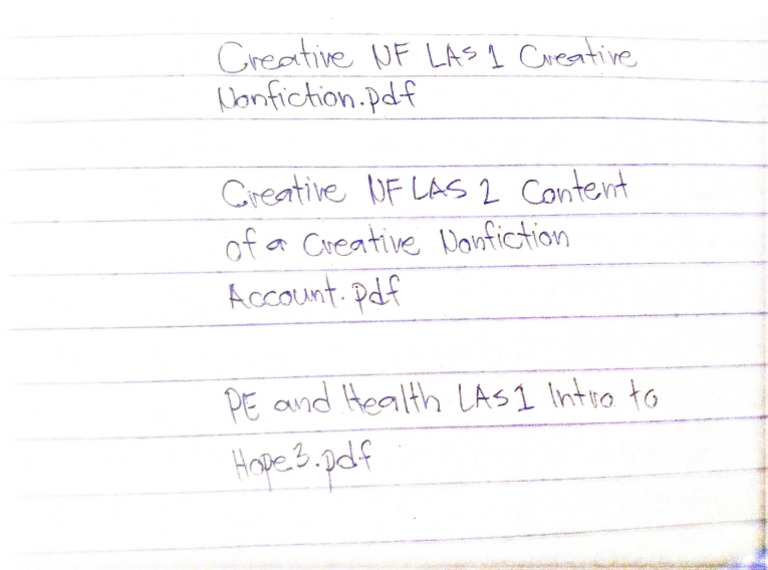 Creative NF LAS 1 Creative
Nonfiction.pdf
Creative NF LAS 2 Content
of a Creative Nonfiction
Account.pdf
PE and Health LAS 1 Intro to
Hope3.pdf